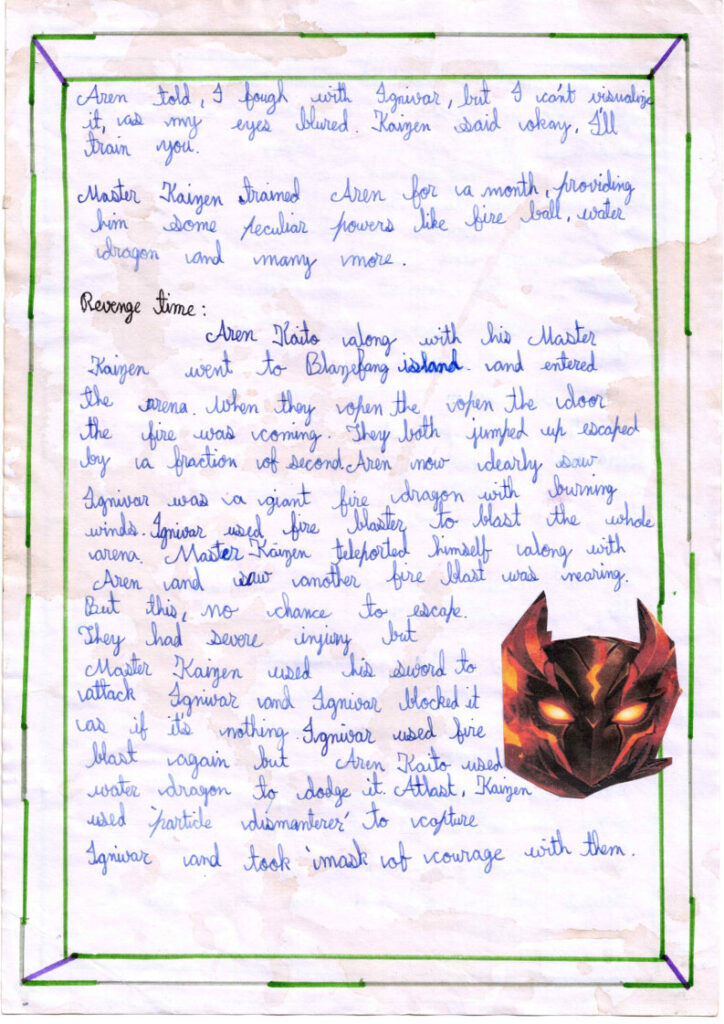 Aren told, I fough with Ignivar, but I can't visualize
it, as my eyes blured. Kaizen said okay, I'll
train you.
Master Kaizen trained Aren for a month, providing
him some peculiar powers like fire ball, water
dragon and many more.
Revenge time:
Aren Kaito along with his Master
Kaizen went to Blazefang island. and entered
the arena. When they open the open the door
the fire was coming. They both jumped up escaped
by a fraction of second. Aren now clearly saw
Ignivar was a giant fire dragon with burning
winds. Ignivar used fire blaster to blast the whole
arena. Master Kaizen teleported himself along with
Aren and saw another fire blast was nearing.
But this, no chance to escape.
They had severe injury but
Master Kaizen used his sword to
attack Ignivar and Ignivar blocked it
as if it's nothing. Ignivar used fire
blast again but Aren Kaito used
water dragon to dodge it. Atlast, Kaizen
used 'particle dismanterer' to capture
Ignivar and took 'mask of courage with them.